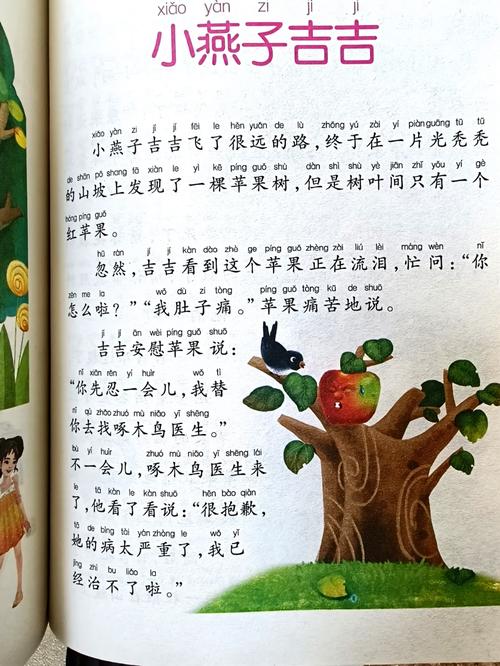 xiǎo yàn zi jí jí
小燕子吉吉
xiǎo yàn zi jí jí fēi le hěn yuǎn de lù zhōng yú zài yí piàn guāng tū tū
小燕子吉吉飞了很远的路，终于在一片光秃秃
de shān pō shang fā xiàn le yì kē píng guǒ shù dàn shì shù yè jiān zhǐ yǒu yí gè
的山坡上发现了一棵苹果树，但是树叶间只有一个
hóng píng guǒ
红苹果。
hū rán jí jí kàn dào zhè ge píng guǒ zhèng zài liú lèi máng wèn nǐ
忽然，吉吉看到这个苹果正在流泪，忙问：“你
zěn me la wǒ dù zi tòng píng guǒ tòng kǔ de shuō
怎么啦？”“我肚子痛。”苹果痛苦地说。
jí jí ān wèi píng guǒ shuō
吉吉安慰苹果说：
nǐ xiān rěn yí huìr wǒ tì
“你先忍一会儿，我替
nǐ qù zhǎo zhuó mù niǎo yī shēng
你去找啄木鸟医生。”
bù yí huìr zhuó mù niǎo yī shēng lái
不一会儿，啄木鸟医生来
le tā kàn le kàn shuō hěn bào qiàn
了，他看了看说：“很抱歉，
tā de bìng tài yán zhòng le wǒ yǐ
她的病太严重了，我已
jīng zhì bu liǎo la
经治不了啦。”